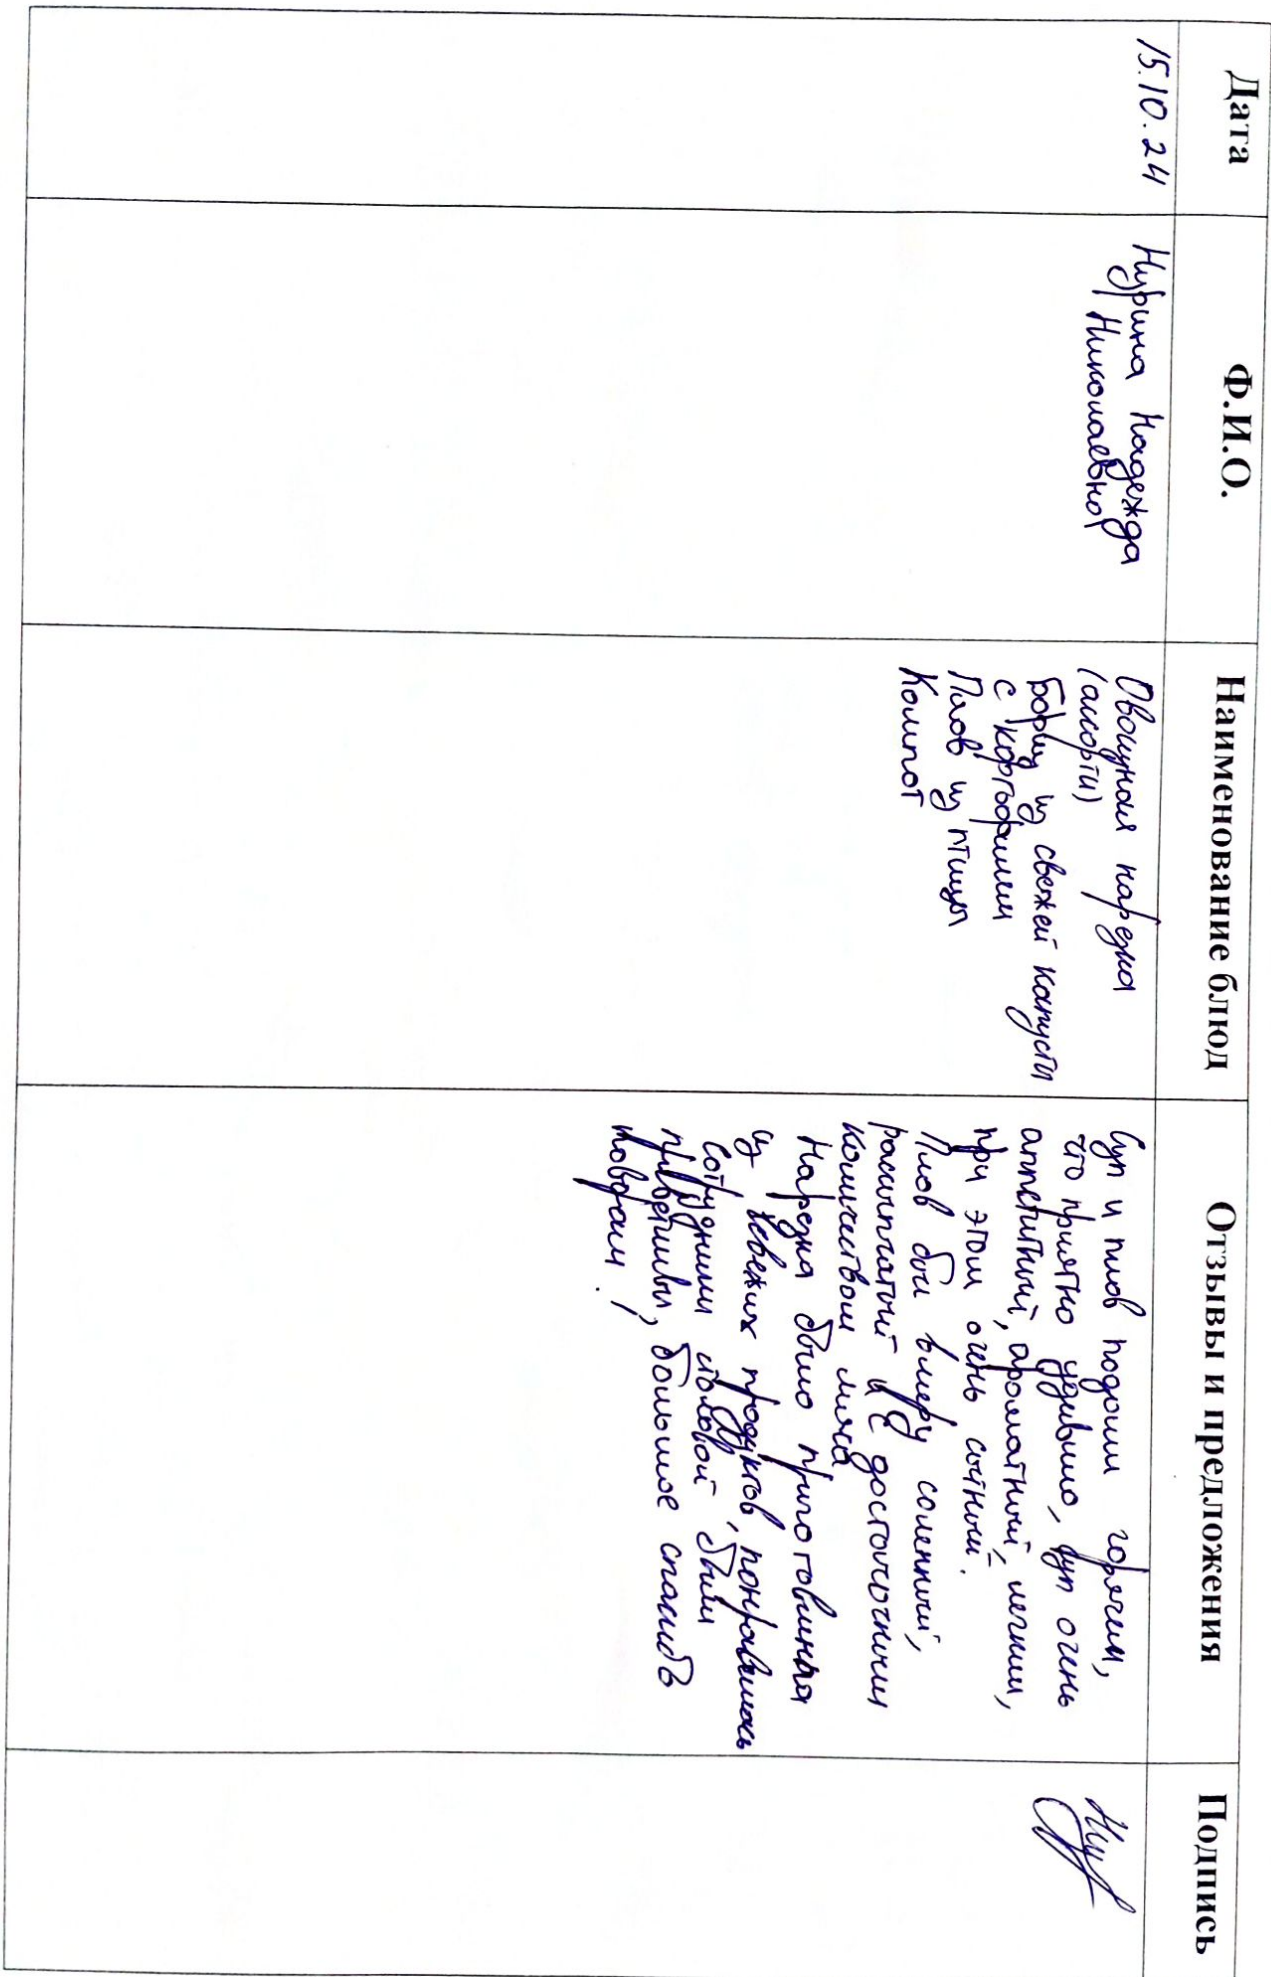 Дата
Ф.И.О.
Наименование блюд
Отзывы и предложения
Подпись
15.10.24
Нурина Надежда
Николаевна
Овощная нарезка
(ассорти)
Борщ из свежей капусты
с картофелем
Плов из птицы
Компот
Суп и плов подошли горячим,
что приятно удивило, суп очень
аппетитный, ароматный, легкий,
при этом очень сытный.
Плов был вмеру соленный,
рассыпчатый и с достаточным
количеством мяса
Нарезка было приготовленна
из свежих продуктов, понравилась
Сотрудники столовой были
приветливы, большое спасибо
поварам!